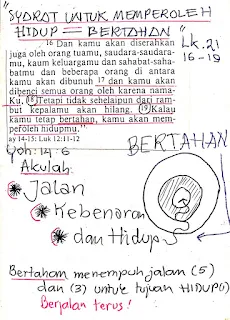 "SYARAT UNTUK MEMPEROLEH
HIDUP = BERTAHAN"
16 Dan kamu akan diserahkan
juga oleh orang tuamu, saudara-saudara-
mu, kaum keluargamu dan sahabat-saha-
batmu dan beberapa orang di antara
kamu akan dibunuh 17 dan kamu akan
dibenci semua orang oleh karena nama-
Ku. 18 Tetapi tidak sehelaipun dari ram-
but kepalamu akan hilang. 19 Kalau
kamu tetap bertahan, kamu akan mem-
peroleh hidupmu."
ay 14-15: Luk 12:11-12
Lk. 21
16-19
BERTAHAN
Yoh: 14:6
Akulah
Jalan
Kebenaran
dan Hidup
Bertahan menempuh jalan (5)
dan (3) untuk tujuan HIDUP(1)
Berjalan terus!